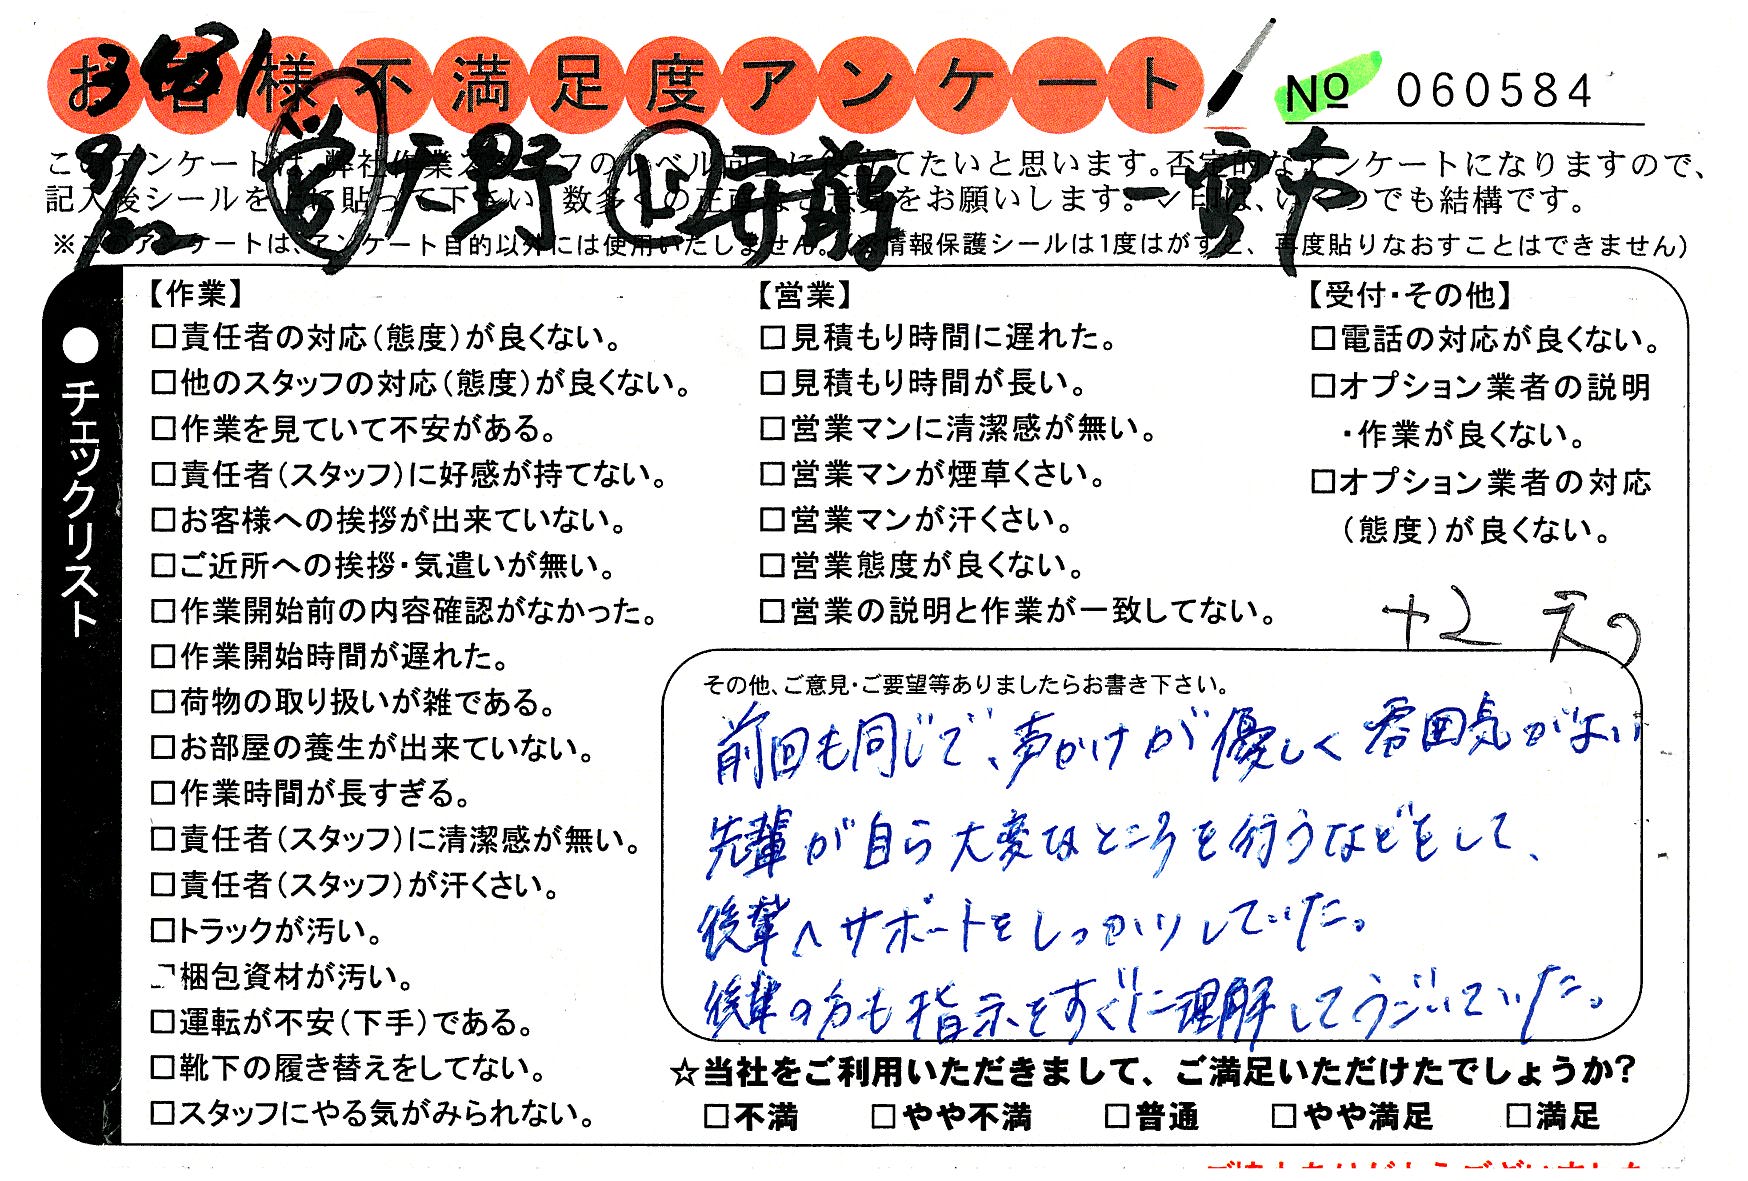 お客様不満足度アンケート
No 060584
8/22 営 天野 L 斉藤 一宮市
このアンケートは、弊社作業スタッフのレベル向上に役立てたいと思います。否定的なアンケートになりますので、
記入後シールを上に貼って下さい。数多くの正直なご意見をお願いします。✓印は、いくつでも結構です。
※このアンケートは、アンケート目的以外には使用いたしません。(※情報保護シールは1度はがすと、再度貼りなおすことはできません)
●チェックリスト
【作業】
□責任者の対応(態度)が良くない。
□他のスタッフの対応(態度)が良くない。
□作業を見ていて不安がある。
□責任者(スタッフ)に好感が持てない。
□お客様への挨拶が出来ていない。
□ご近所への挨拶・気遣いが無い。
□作業開始前の内容確認がなかった。
□作業開始時間が遅れた。
□荷物の取り扱いが雑である。
□お部屋の養生が出来ていない。
□作業時間が長すぎる。
□責任者(スタッフ)に清潔感が無い。
□責任者(スタッフ)が汗くさい。
□トラックが汚い。
□梱包資材が汚い。
□運転が不安(下手)である。
□靴下の履き替えをしてない。
□スタッフにやる気がみられない。
【営業】
□見積もり時間に遅れた。
□見積もり時間が長い。
□営業マンに清潔感が無い。
□営業マンが煙草くさい。
□営業マンが汗くさい。
□営業態度が良くない。
□営業の説明と作業が一致してない。
【受付・その他】
□電話の対応が良くない。
□オプション業者の説明
・作業が良くない。
□オプション業者の対応
(態度)が良くない。
+2
その他、ご意見・ご要望等ありましたらお書き下さい。
前回も同じで、声かけが優しく雰囲気がよい
先輩が自ら大変なところを行うなどをして、
後輩へサポートをしっかりしていた。
後輩の方も指示をすぐに理解してうごいていた。
☆当社をご利用いただきまして、ご満足いただけたでしょうか?
□不満 □やや不満 □普通 □やや満足 □満足